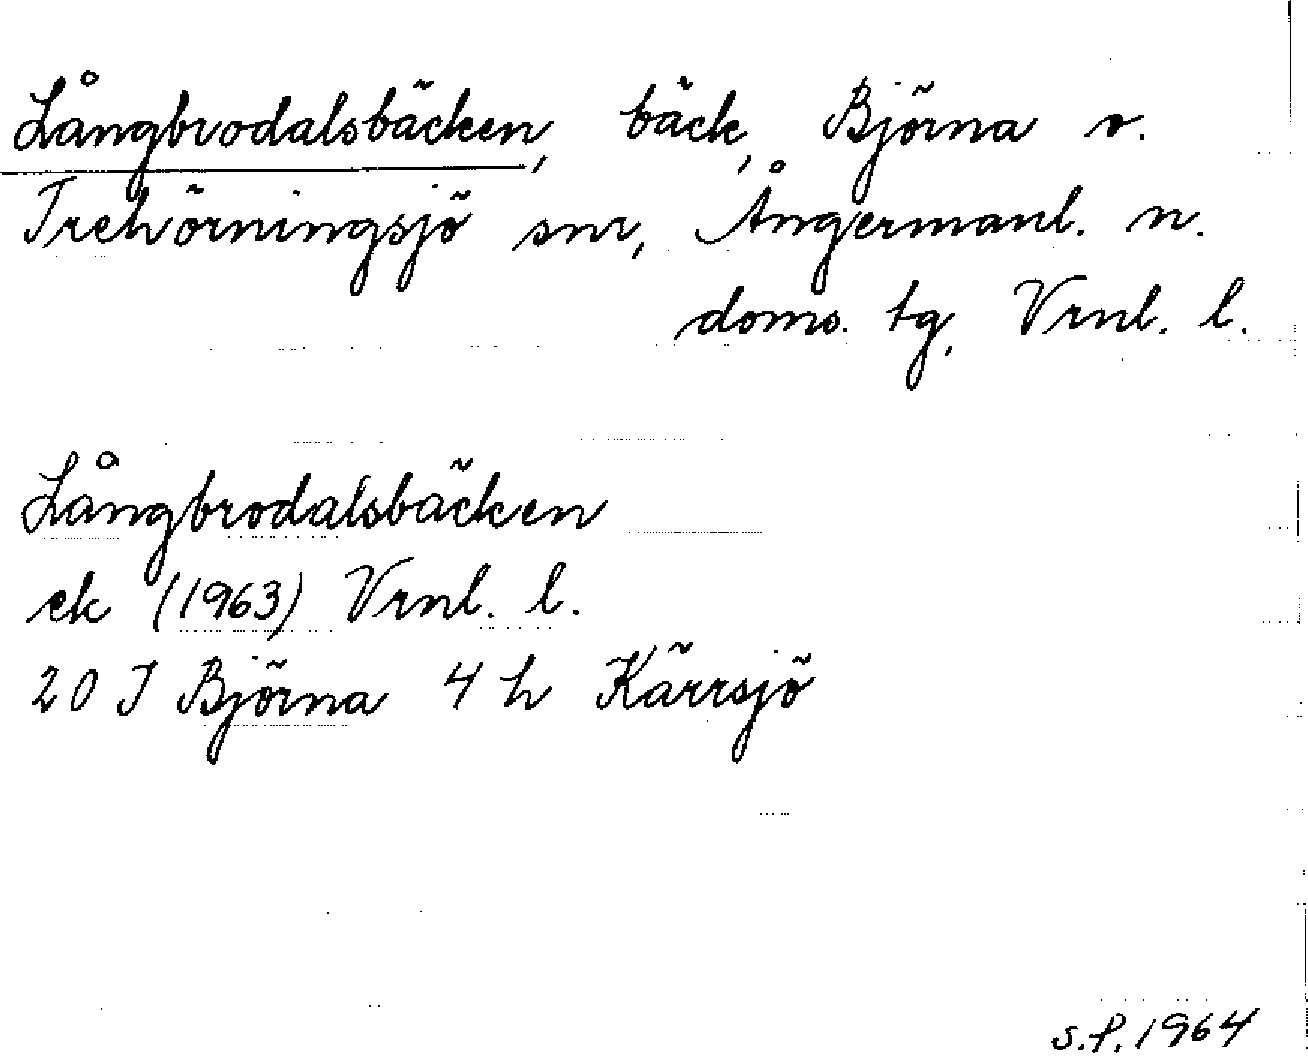 Långbrodalsbäcken, bäck, Björna o.
Trehörningsjö snr, Ångermanl. n.
doms. tg, Vrnl. l.
Långbrodalsbäcken
ek (1963) Vrnl. l.
20 I Björna 4 h Kärrsjö
S.P. 1964